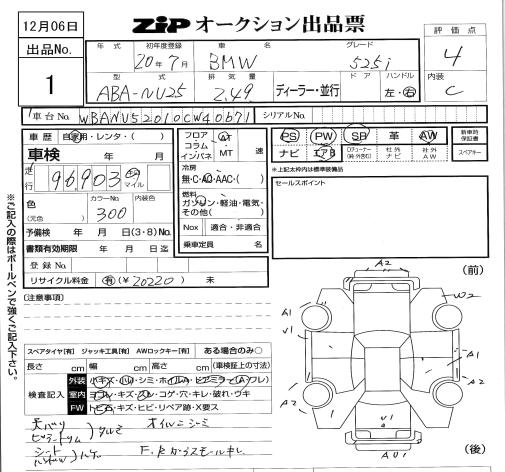 12月06日
ZiP オークション出品票
出品No.
1
年式
初年度登録
車名
グレード
20年7月
BMW
525i
型式
排気量
ドア
ハンドル
ABA-NU25
2.49
ディーラー・並行
左・右
評価点
4
内装
C
車台No.
WBANU52010CW40671
シリアルNo.
車歴
自家用・レンタ・( )
車検
年 月
走行
96,903
マイル
色
(元色)
カラーNo.
300
内装色
予備検 年 月 日(3・8)No.
書類有効期限 年 月 日迄
登録No.
リサイクル料金 有(¥20220) 未
フロア
コラム
インパネ
AT
MT
速
冷房
無・C・AC・AAC・( )
燃料
ガソリン・軽油・電気・
その他( )
Nox 適合・非適合
乗車定員 名
PS PW SB 革 AW
ナビ エアB
社外ナビ
社外AW
新車時保証書
スペアキー
※上記太枠内は標準装備品
セールスポイント
※ご記入の際はボールペンで強くご記入下さい。
(注意事項)
スペアタイヤ[有] ジャッキ工具[有] AWロックキー[有] ある場合のみ○
長さ cm 幅 cm 高さ cm (車検証上の寸法)
検査記入
外装
室内
ヨゴレ・キズ・スレ・コゲ・穴・キレ・破れ・ウキ
FW
トビ石・キズ・ヒビ・リペア跡・X要ス
オイルニジミ
(前)
A2
W2
A1
V1
A1
A2
A2
V1
AU1
(後)